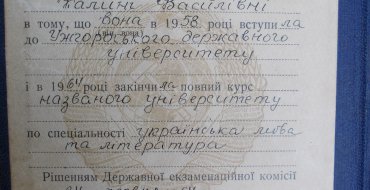 Галині Василівні
в тому, що вона в 1958 році вступила
(він, вона)
до Ужгородського державного
університету
і в 1964 році закінчила повний курс
названого університету
по спеціальності українська мова
та література
Рішенням Державної екзаменаційної комісії